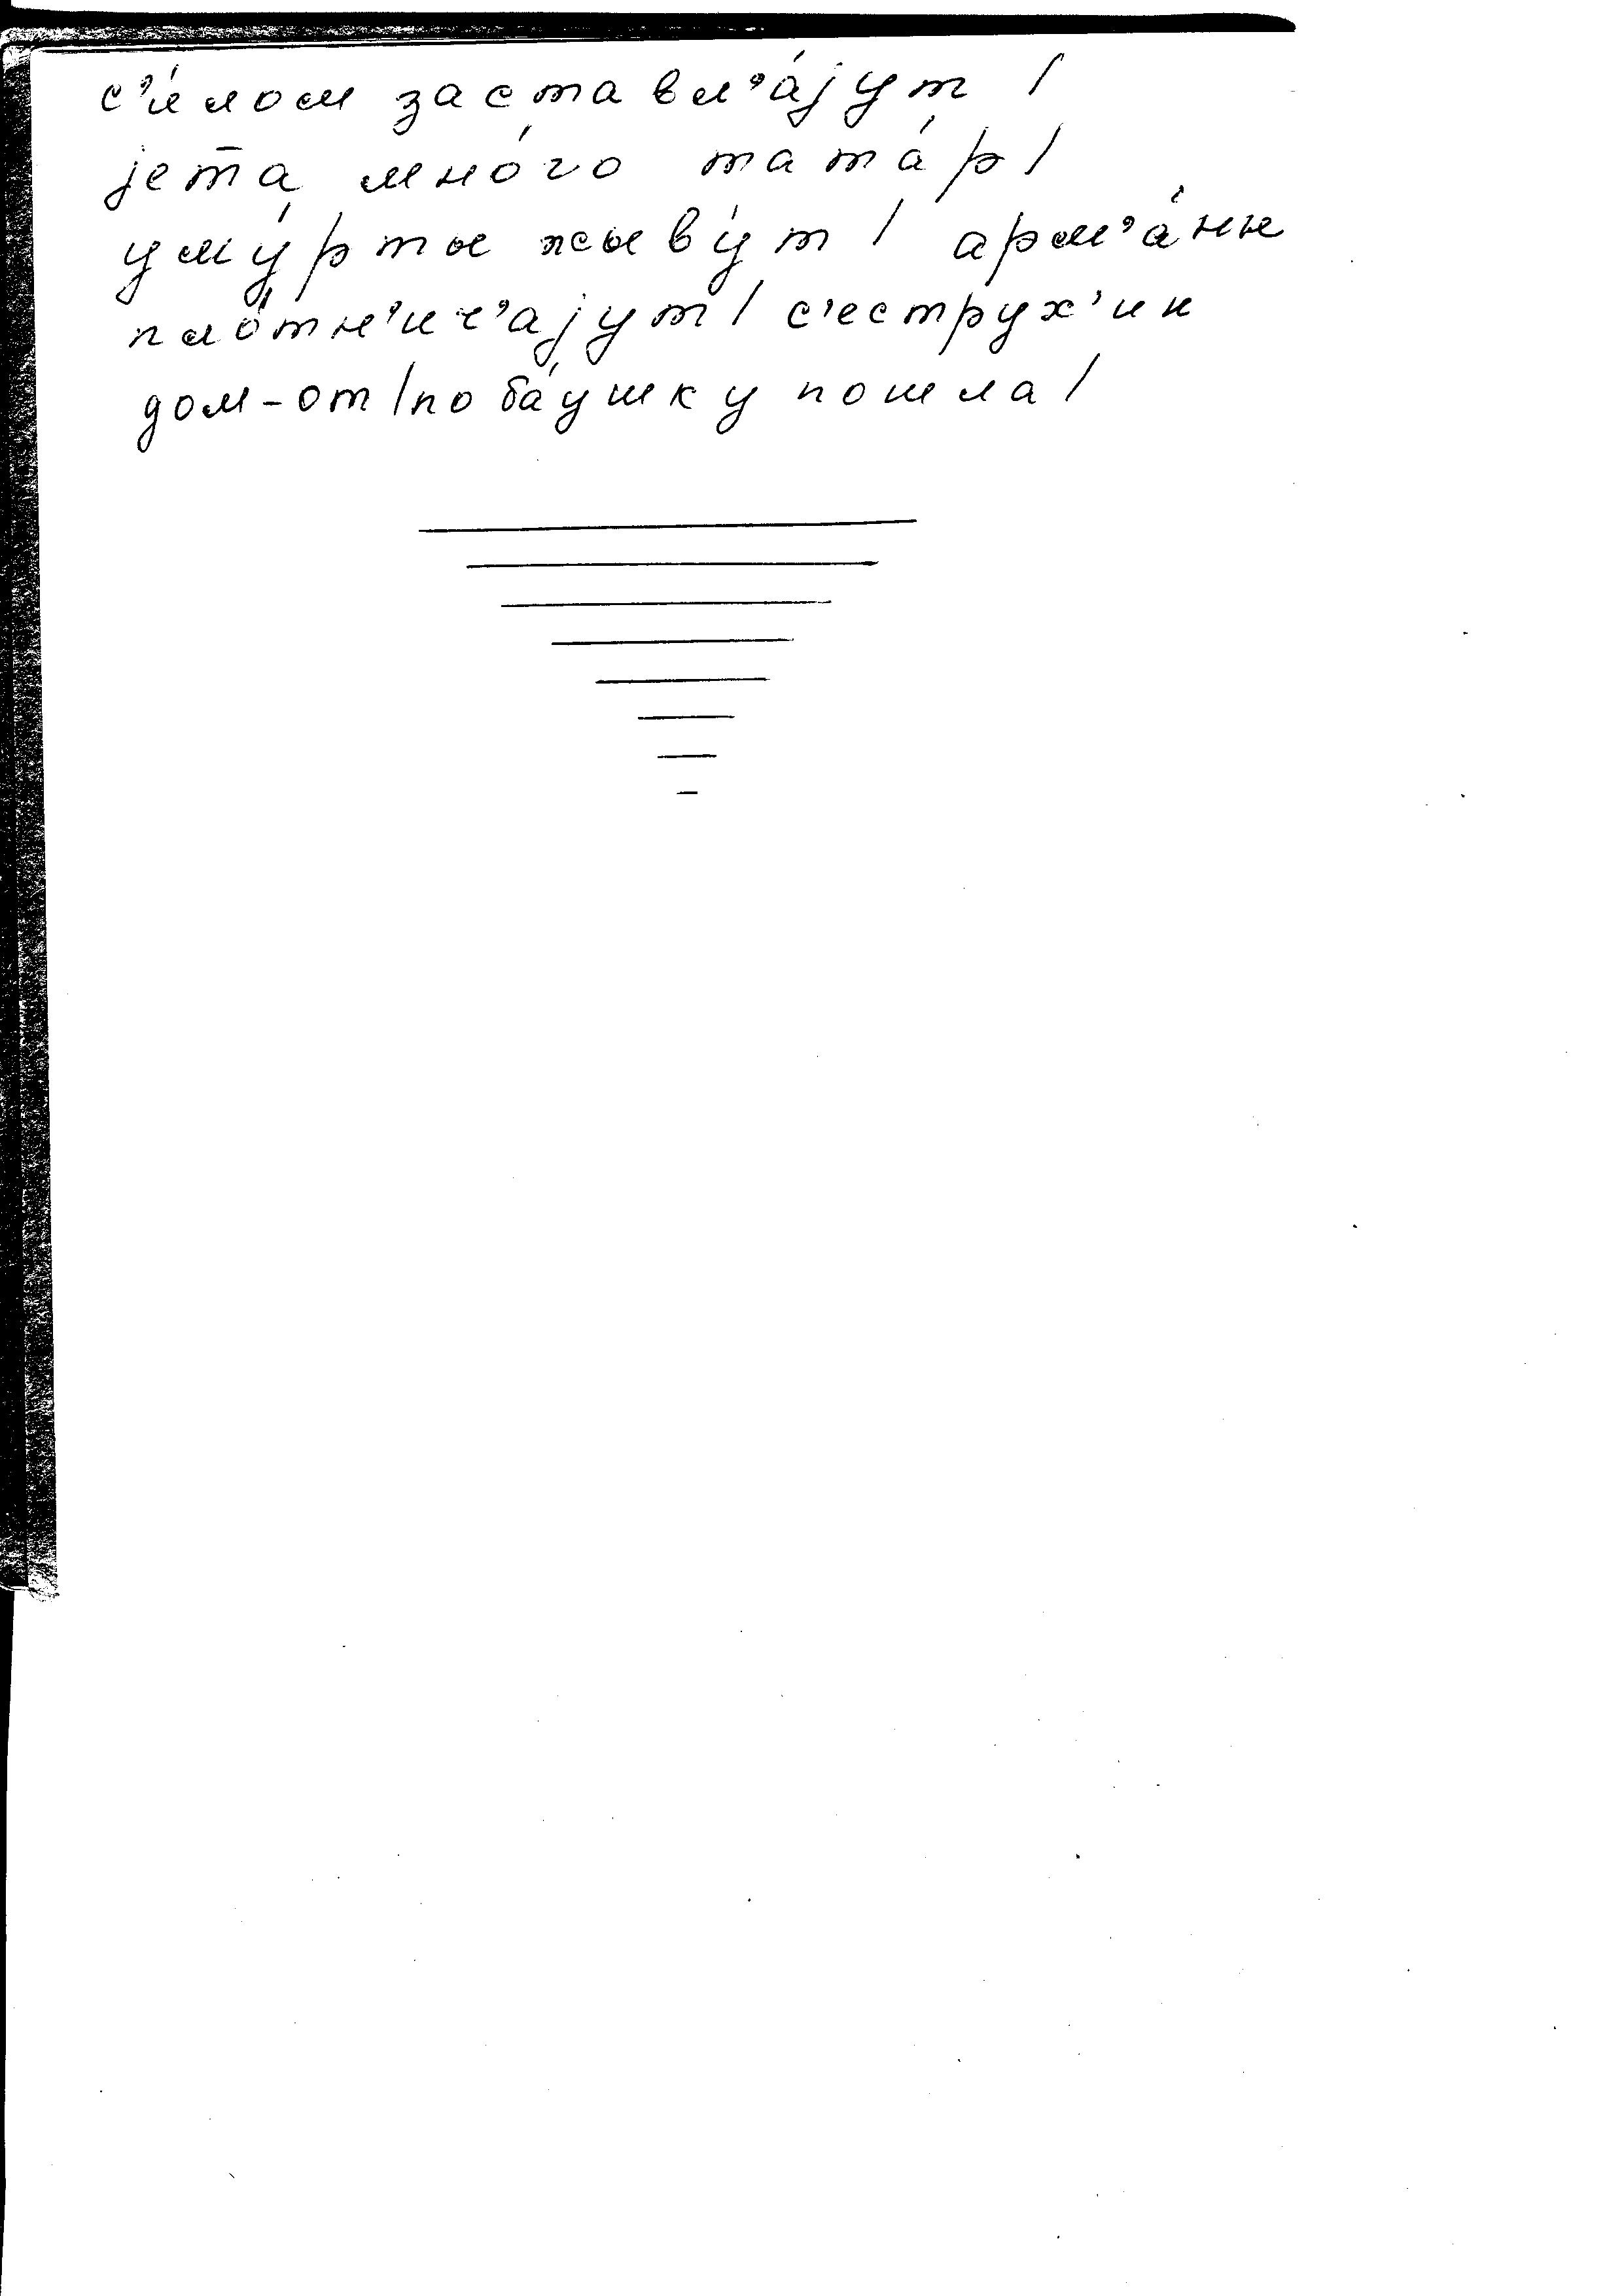 с’и́лом заставл’а́јут /
јета мно́го тата́р /
уму́рты жыву́т / арм’а́ны
пло́тн’ич’ајут / с’еструх’ин
дом-от / по ба́ушку пошла /